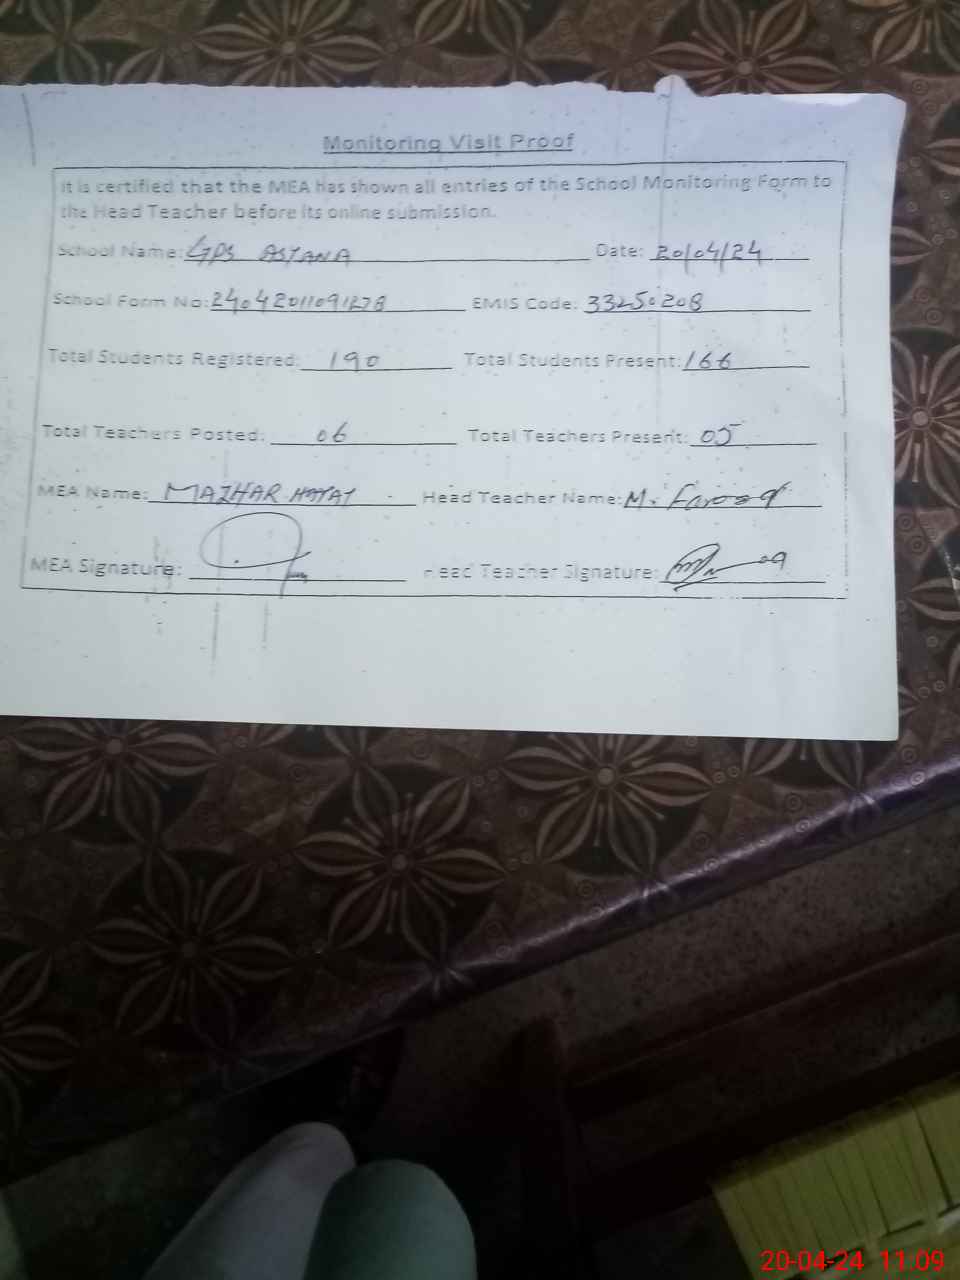 Monitoring Visit Proof
It is certified that the MEA has shown all entries of the School Monitoring Form to
the Head Teacher before its online submission.
School Name: GPS ASTANA Date: 20/04/24
School Form No: 24042011091278 EMIS Code: 33250208
Total Students Registered: 190 Total Students Present: 166
Total Teachers Posted: 06 Total Teachers Present: 05
MEA Name: MAZHAR HAYAT Head Teacher Name: M. Farooq
MEA Signature: Head Teacher Signature:
20-04-24 11:09